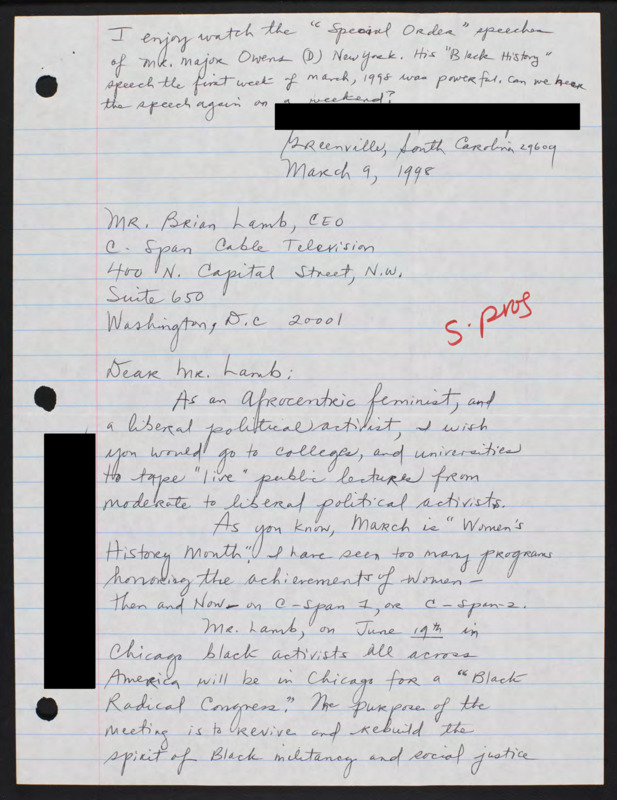 I enjoy watch the "Special Order" speeches
of Mr. Major Owens (D) New York. His "Black History"
speech the first week of march, 1998 was powerful. Can we hear
the speech again on a weekend?
Greenville, South Carolina 29609
March 9, 1998
MR. Brian Lamb, CEO
C-Span Cable Television
400 N. Capital Street, N.W.
Suite 650
Washington, D.C 20001
S. pros
Dear Mr. Lamb:
As an Afrocentric feminist, and
a liberal political activist, I wish
you would go to colleges, and universities
to tape "live" public lectures from
moderate to liberal political activists.
As you know, March is "Women's
History Month". I have seen too many programs
honoring the achievements of Women -
then and Now - on C-Span 1, or C-Span-2.
Mr. Lamb, on June 19th in
Chicago black activists all across
America will be in Chicago for a "Black
Radical Congress." The purpose of the
meeting is to revive and rebuild the
spirit of Black militancy and social justice